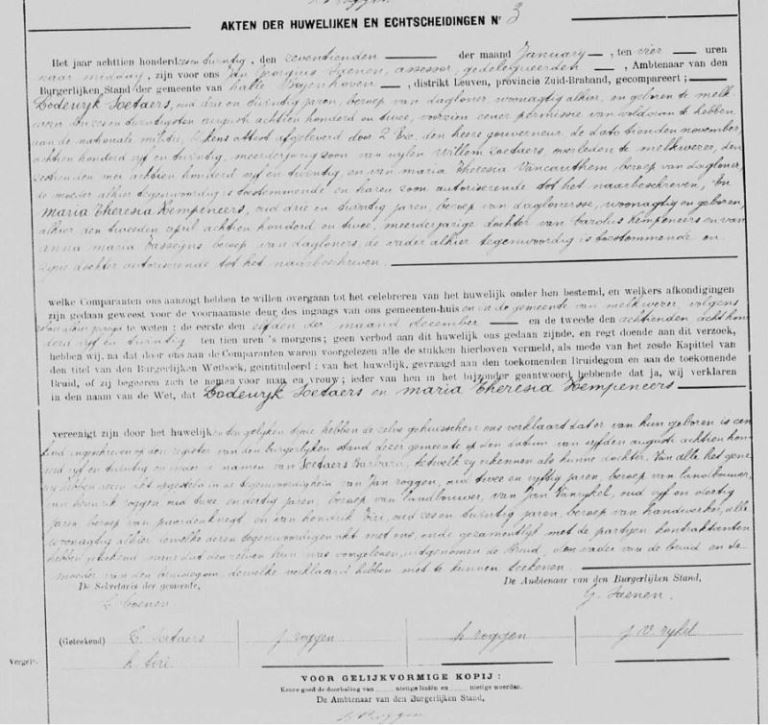 AKTEN DER HUWELIJKEN EN ECHTSCHEIDINGEN Nr 3
Het jaar achttien honderd zes en twintig, den zeventienden der maand January, ten vier uren
naar middag, zijn voor ons Jan Georgius Saenen, assessor, gedelegueerden, Ambtenaar van den
Burgerlijken Stand der gemeente van halle Boyenhoven, distrikt Leuven, provincie Zuid-Braband, gecompareert;
Lodewyk Soetaers, oud drie en twintig jaren, beroep van dagloner, woonagtig alhier, en geboren te melk
weren den zes en twintigsten augusti achttien honderd en twee, voorzien eener permissie van voldoen te hebben
aan de nationale militie, blykens attest afgeleverd door Z Exc. den heere gouverneur de dato tienden november
achttien honderd vyf en twintig, meerderjarig zoon van wylen Willem Soetaers, overleden te melkweren, den
mei achttien honderd vyf en twintig, en van maria Theresia beroep van dagloner
de moeder alhier tegenwoordig is toestemmende en haren zoon autoriserende tot het naarbeschreven, En
maria Theresia Kempeneers, oud drie en twintig jaren, beroep van dagloneresse, woonagtig en geboren
alhier den tweeden april achttien honderd en twee, meerderjarige dochter van Carolus Kempeneers en van
anna maria beroep van dagloners, de vader alhier tegenwoordig is toestemmende en
zyne dochter autoriserende tot het naarbeschreven.
welke Comparanten ons aanzogt hebben te willen overgaan tot het celebreren van het huwelijk onder hen bestemd, en welkers afkondigingen
zijn gedaan geweest voor de voornaamste deur des ingangs van ons gemeenten-huis en van de gemeente van melkweren, volgens
te weten: de eerste den elfden der maand december en de tweede den achtienden acht hon
derd vyf en twintig ten tien uren 's morgens; geen verbod aan dit huwelijk ons gedaan zijnde, en regt doende aan dit verzoek,
hebben wij, na dat door ons aan de Comparanten waren voorgelezen alle de stukken hierboven vermeld, als mede van het zesde Kapittel van
den titel van den Burgerlijken Wetboek, geïntituleerd: van het huwelijk, gevraagd aan den toekomenden Bruidegom en aan de toekomende
Bruid, of zij begeeren zich te nemen voor man en vrouw; ieder van hen in het bijzonder geantwoord hebbende dat ja, wij verklaren
in den naam van de Wet, dat Lodewyk Soetaers en maria Theresia Kempeneers
vereenigt zijn door het huwelijk en ten gelyken tyde hebben de zelve gehuwschen ons verklaart dat er van hun geboren is een
kind ingeschreven op den register van den burgerlyken stand dezer gemeente op den datum van vyfden augusti achttien hon
derd vyf en twintig en onder de namen van Soetaers Barbara, hetwelk zy erkennen als hunne dochter. Van alle het gene
wy hebben dezen akt opgesteld in de tegenwoordigheid van Jan roggen, oud twee en vyftig jaren, beroep van landbouwer,
van hendrik roggen oud twee en dertig jaren, beroep van landbouwer, van Jan Vanrykel, oud vyf en veertig
jaren, beroep van paardenknegt en van hendrik oud zes en twintig jaren, beroep van handwerker, alle
woonagtig alhier dewelke dezen tegenwoordigen akt met ons, ende gezamentlyk met de partyen kontraktanten
hebben geteekend naar dat den zelven hun was voorgelezen, uitgenomen de bruid, den vader van de bruid en de
moeder van den bruidegom dewelke verklaard hebben niet te kunnen teekenen.
De Sekretaris der gemeente,
De Ambtenaar van den Burgerlijken Stand,
L Coenen
G. Saenen.
(Geteekend) L. Soetaers
J roggen
h roggen
J. V. rykel
Vergel.
VOOR GELIJKVORMIGE KOPIJ:
Keure goed de doorhaling van nietige linïën en nietige woorden.
De Ambtenaar van den Burgerlijken Stand,